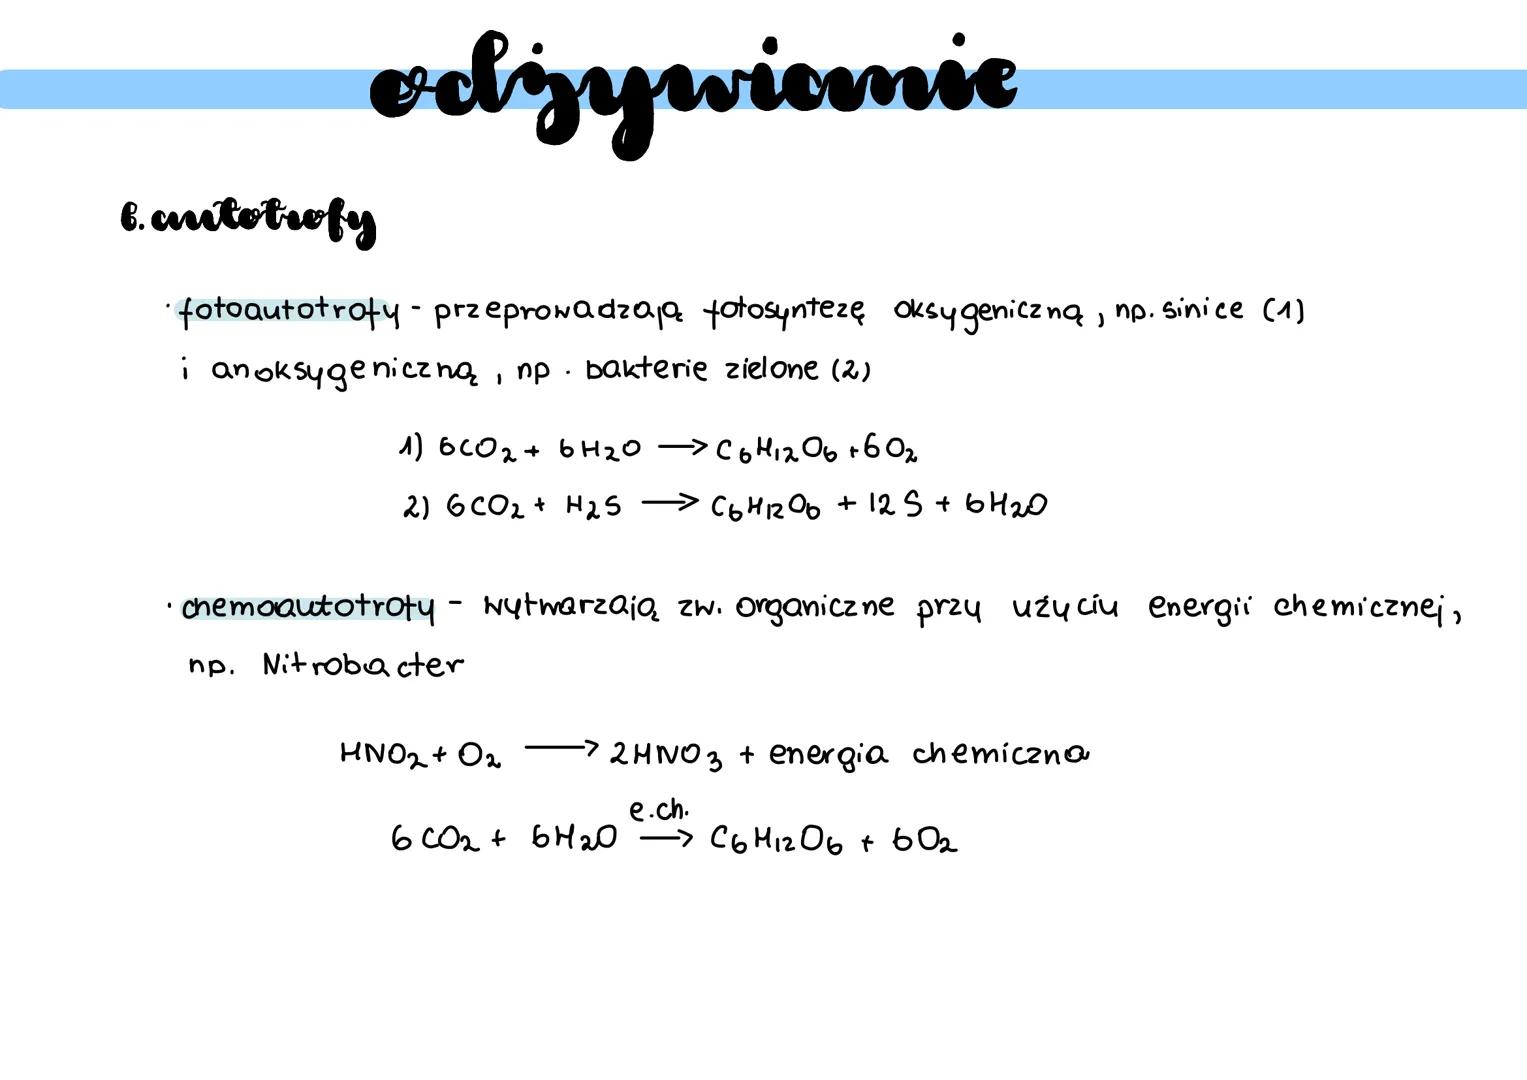 odżywianie
B. autotrofy
· fotoautotrofy - przeprowadzają fotosyntezę oksygeniczną, np. sinice (1)
i anoksygeniczną, np. bakterie zielone (2)
1) 6CO₂ + 6H₂O → C₆H₁₂O₆ + 6O₂
2) 6CO₂ + H₂S → C₆H₁₂O₆ + 12S + 6H₂O
· chemoautotrofy - wytwarzają zw. organiczne przy użyciu energii chemicznej,
np. Nitrobacter
HNO₂ + O₂ → 2HNO₃ + energia chemiczna
e.ch.
6CO₂ + 6H₂O → C₆H₁₂O₆ + 6O₂